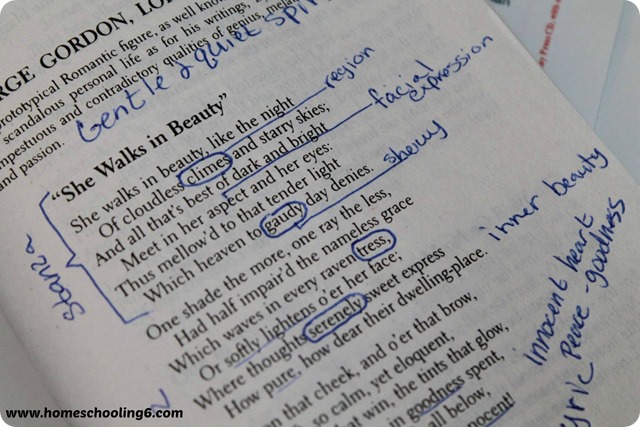 RGE GORDON, LO
prototypical Romantic figure, as well know
scandalous personal life as for his writings,
mpestuous and contradictory qualities of genius, mela
and passion.
Gentle & quiet spir
"She Walks in Beauty"
She walks in beauty, like the night
Of cloudless climes and starry skies;
And all that's best of dark and bright
Meet in her aspect and her eyes:
Thus mellow'd to that tender light
Which heaven to gaudy day denies.
One shade the more, one ray the less,
Had half impair'd the nameless grace
Which waves in every raven tress,
Or softly lightens o'er her face;
Where thoughts serenely sweet express
How pure, how dear their dwelling-place.
n that cheek, and o'er that brow,
so calm, yet eloquent,
that win, the tints that glow,
in goodness spent,
all below,
nnocent!
region
facial
expression
showy
Stanza
inner beauty
innocent heart
yric Peace - goodness
www.homeschooling6.com